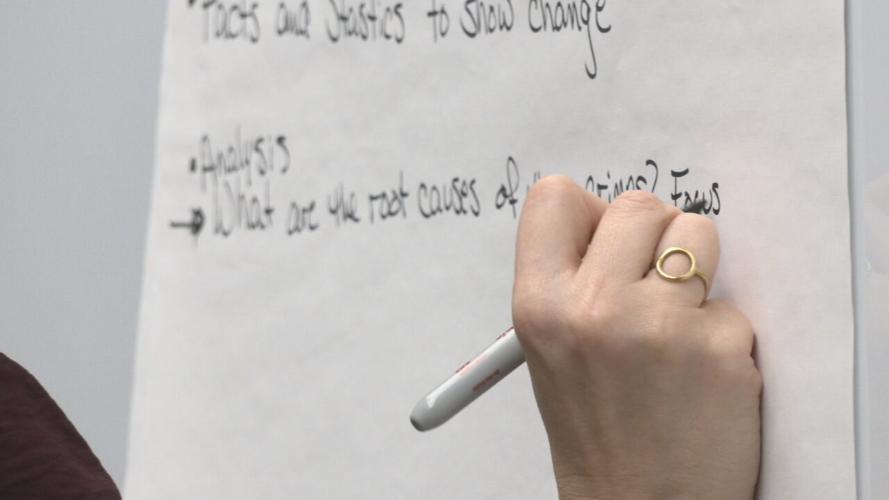 • Facts and Stastics to show change
• Analysis
→ What are the root causes of the crimes? Focus